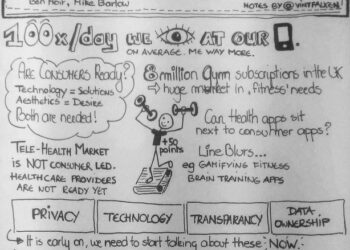 Ben Heir, Mike Barlow
NOTES BY @VINTFALKEN
100x/day WE AT OUR
ON AVERAGE. ME WAY MORE.
ARE CONSUMERS READY?
TECHNOLOGY = SOLUTIONS
AESTHETICS = DESIRE
BOTH ARE NEEDED!
8 million gym subscriptions in the UK
→ huge market in 'fitness' needs
+50
points
Can Health apps sit
next to consumer apps?
LINE BLURS...
eg GAMIFYING FITNESS
BRAIN TRAINING APPS
TELE-HEALTH MARKET
IS NOT CONSUMER LED.
HEALTHCARE PROVIDERS
ARE NOT READY YET
PRIVACY
TECHNOLOGY
TRANSPARANCY
DATA
OWNERSHIP
→ It is early on, we need to start talking about these NOW.